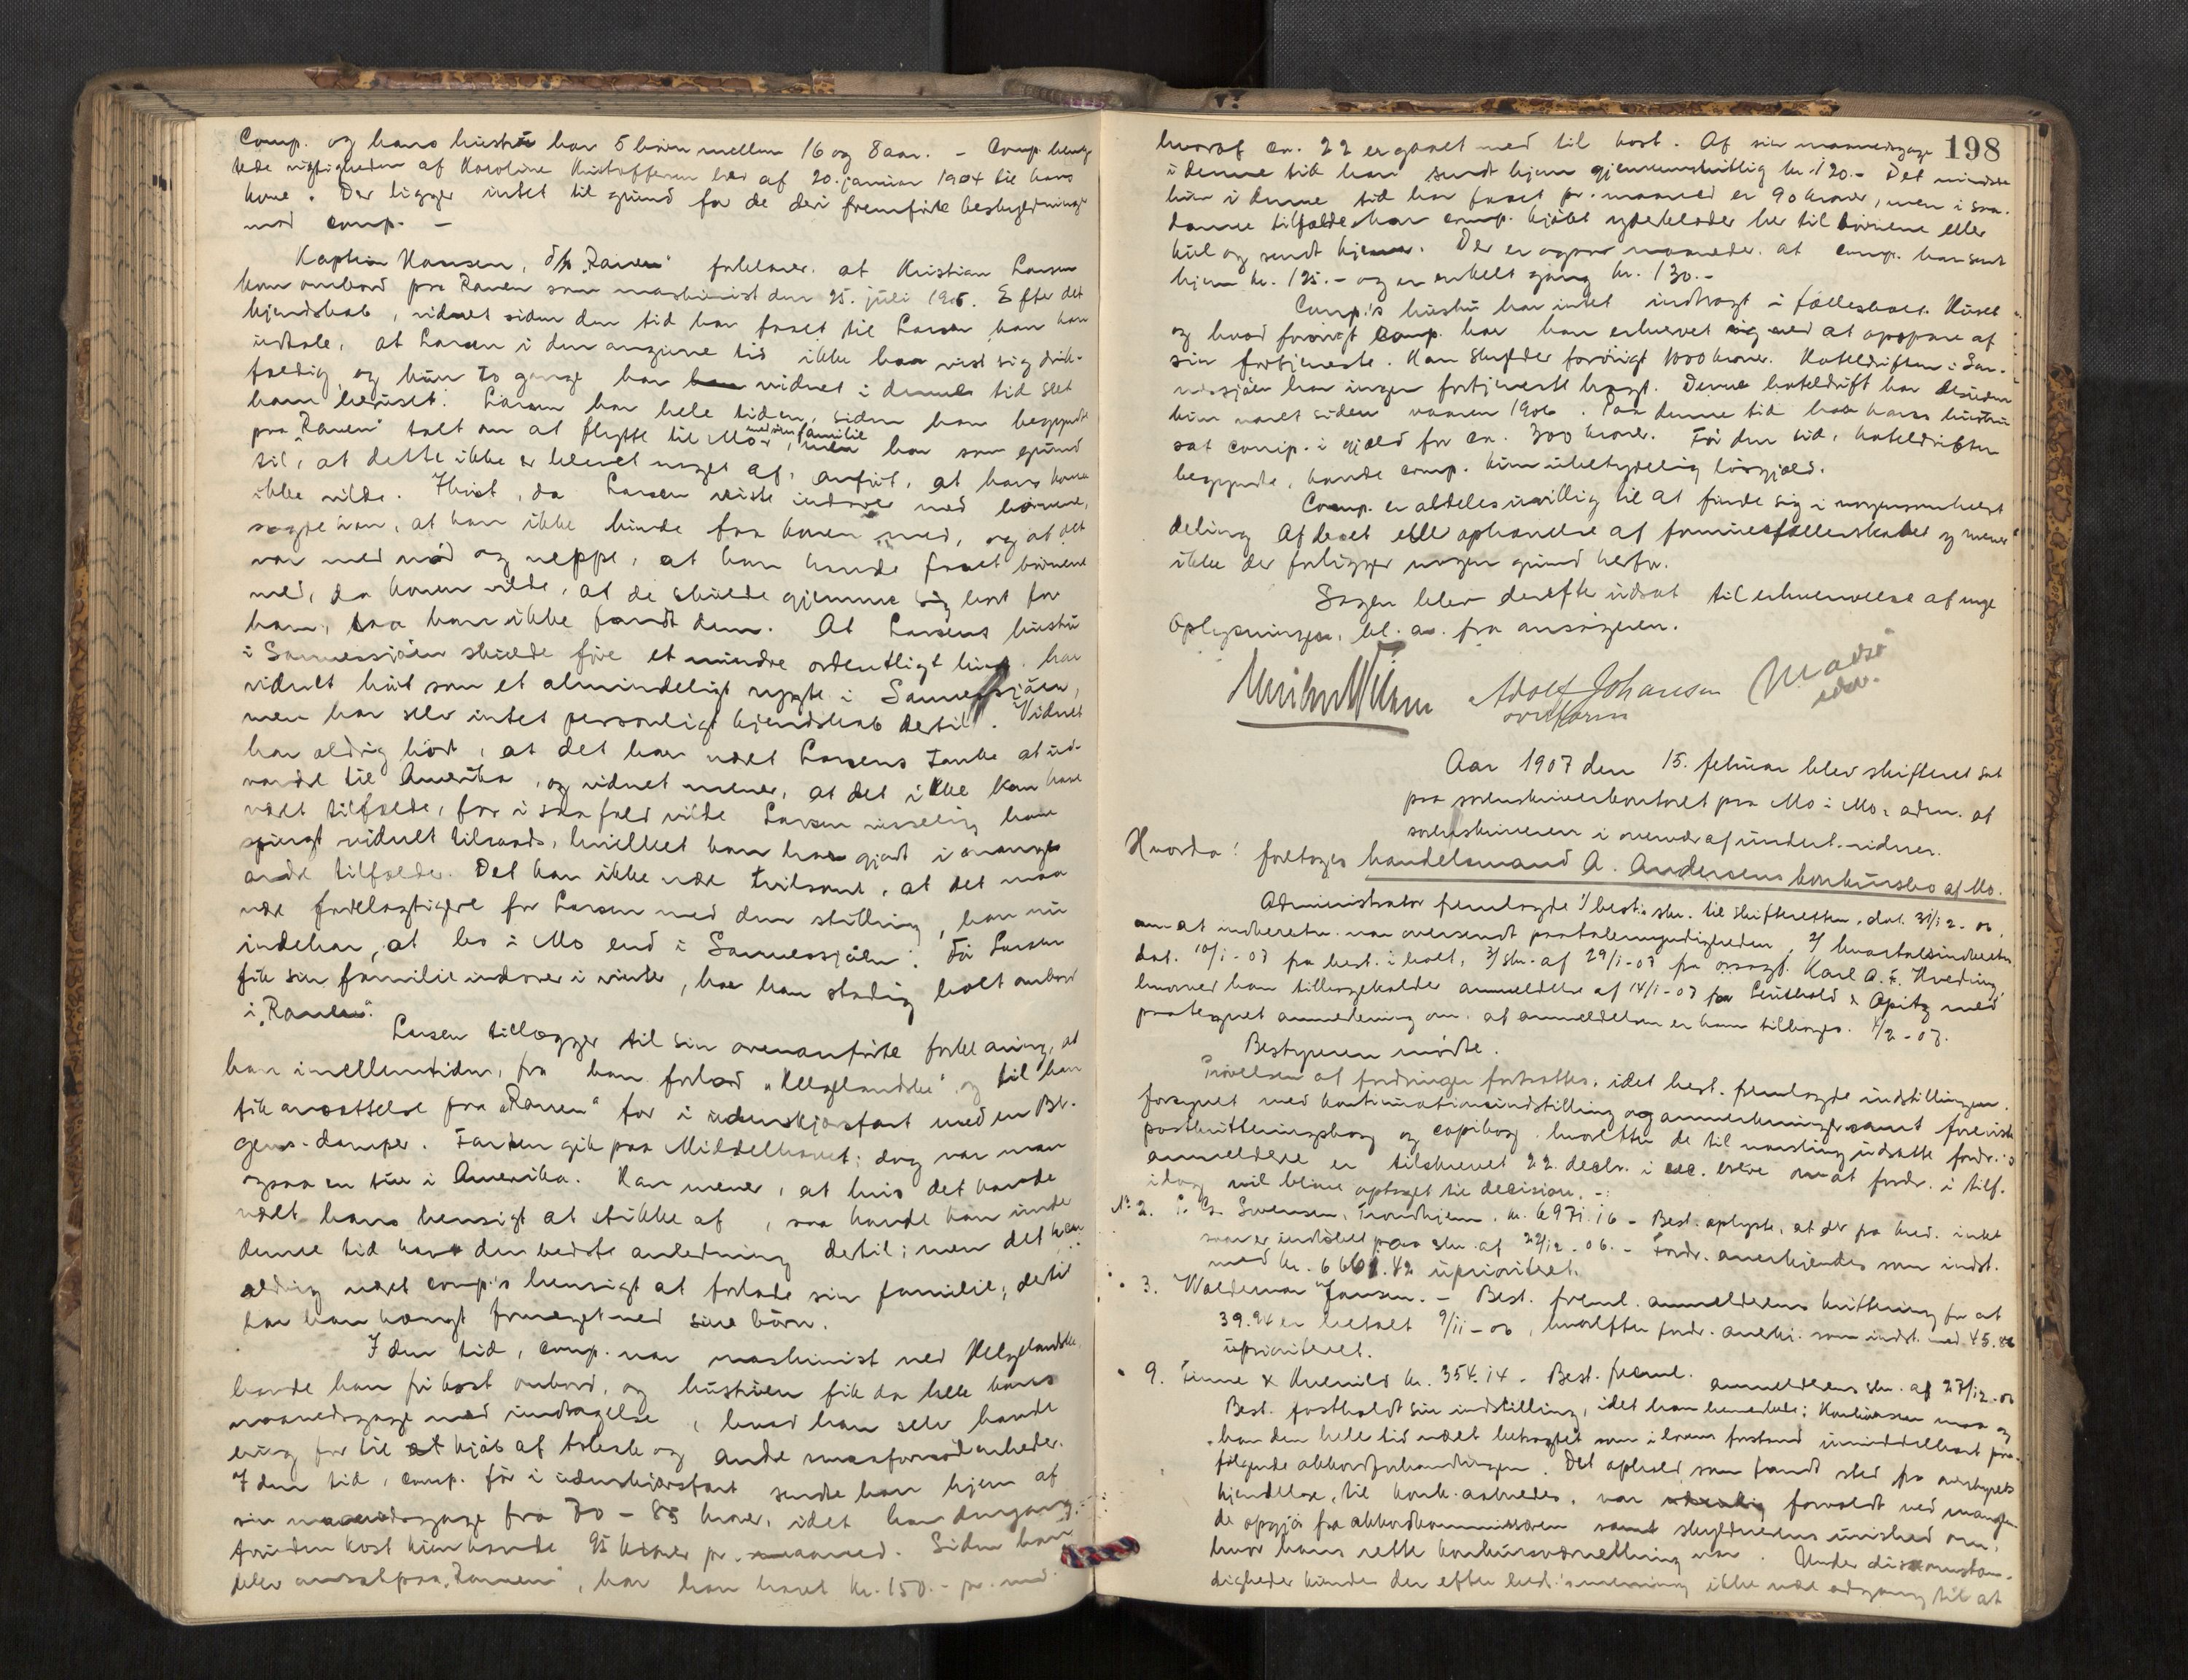 Comp. og hans hustru har 5 börn mellem 16 og 8 aar. - Comp. benæg
tede rigtigheden af Karoline Kristoffersen brev af 20. januar 1904 til hans
kone. Der ligger intet til grund for de deri fremförte beskyldninger
mod comp. -
Kaptein Hansen, d/s "Ranen" forklarer at Kristian Larsen
kom ombord paa Ranen som maskinist den 25. juli 1905. Efter det
kjendskab, vidnet siden den tid har faaet til Larsen kan han
udtale, at Larsen i den angivne tid ikke har vist sig drik-
fældig og kun to gange har vidnet i denne tid seet
ham beruset. Larsen har hele tiden, siden han begyndte
paa "Ranen" talt om at flytte til Mo med sin familie, men har som grund
til, at dette ikke er blevet noget af, anfört, at hans kone
ikke vilde. Ihöst, da Larsen reiste indover med börnene,
sagde han, at han ikke kunde faa konen med, og at det
var med nöd og neppe, at han havde faaet börnene
med, da konen vilde, at de skulde gjemme sig bort for
ham, saa han ikke fandt dem. At Larsens hustru
i Sannessjöen skulde före et mindre ordentligt hus har
vidnet hört som et almindeligt rygte i Sannessjöen,
men har selv intet personligt kjendskab dertil. Vidnet
har aldrig hört, at det har været Larsens tanke at ud-
vandre til Amerika, og vidnet mener, at det ikke kan have
været tilfælde, for i saa fald vilde Larsen visselig have
spurgt vidnet tilraads, hvilket han har gjort i mange
andre tilfælder. Det kan ikke være tvilsomt, at det maa
være fordelagtigere for Larsen med den stilling, han nu
indehar, at bo i Mo end i Sannessjöen. För Larsen
fik sin familie indover i vinter, har han stadig holt ombord
i "Ranen".
Larsen tillægger til sin ovenanförte forklaring, at
han imellemtiden, fra han forlod "Helgelandske" og til han
fik ansættelse paa "Ranen" for i udenrigsfart med en Ber-
gens-damper. Farten gik paa Middelhavet; dog var man
ogsaa en tur i Amerika. Han mener, at hvis det havde
været hans hensigt at stikke af, saa havde han under
denne tid havt den bedste anledning dertil; men det har
aldrig været comp.'s hensigt at forlade sin familie; dertil
har han hængt formeget ved sine börn.
I den tid, comp. var maskinist ved Helgelandske,
havde han fri kost ombord, og hustruen fik da hele hans
maanedsgage med undtagelse, hvad han selv havde
brug for til kjöb af tobak og andre smaafornödenheder.
I den tid, comp. för i udenrigsfart sendte han hjem af
sin maanedsgage fra 70 - 85 kroner, idet han dengang
foruden kost kun havde 95 kroner pr. maaned. Siden han
blev ansat paa "Ranen", har han havt kr. 150.- pr. md.
198
hvoraf ca. 22 er gaaet med til kost. Af sin maanedsgage
i denne tid har sendt hjem gjennemsnitlig kr. 120.- Det mindste
hun i denne tid har faaet pr. maaned er 90 kroner, men i saa-
danne tilfælde har comp. kjöbt yderklæder her til börnene eller
kul og sendt hjem. Der er ogsaa maaneder at comp. har sendt
hjem kr. 125.- og en enkelt gang kr. 130.-
Comp.'s hustru har intet indbragt i fællesboet. Huset
og hvad forövrigt comp. har har han erhvervet sig ved at opspare af
sin fortjeneste. Han skylder forövrigt 1000 kroner. Hoteldriften i San-
nessjöen har ingen fortjeneste bragt. Denne hoteldrift har desuden
kun varet siden vaaren 1906. Paa denne tid har hans hustru
sat comp. i gjæld for ca. 300 kroner. För den tid, hoteldriften
begyndte, havde comp. kun ubetydelig lösgjæld.
Comp. er aldeles uvillig til at finde sig i nogensomhelst
deling af boet eller ophævelse af formuesfællesskabet og mener
ikke der foreligger nogen grund herfor.
Sagen blev derefter udsat til erhvervelse af nye
Oplysninger, bl. a. fra ansögeren.
Adolf Johansen
Aar 1907 den 15. februar blev skifteret sat
paa sorenskriverkontoret paa Mo i Mo, adm. af
sorenskriveren i overvær af undert. vidner.
Hvorda: foretoges handelsmand A. Andersens konkursbo af Mo.
Administrator fremlagde 1/ best. skr. til skifteretten, dat. 31/12-06,
om at indberetn. var oversendt paatalemyndigheden, 2/ kvartalsindberetn.
dat. 10/1-07 fra best. i boet, 3/ skr. af 29/1-07 fra orsagf. Karl A. F. Hveding,
hvorved han tilbagekalder anmeldelse af 14/1-07 fra Leuthold & Apitz med
paategnet anmerkning om, at anmeldelsen er ham tilbages. 1/2-07.
Bestyreren mödte.
Prövelsen af fordringer fortsattes, idet best. fremlagde indstillingen
forsynet med kontinuationsindstilling og anmerkninger samt foreviste
postkvitteringsbog og copibog hvorefter de til næstling udsatte fordr.'s
anmeldere er tilskrevet 22. decbr. i rec. breve om at fordr. i tilf.
idag vil blive optaget til decision. -
No 2. Svensen, Trondhjem. kr. 6971.16 - Best. oplyste, at der fra kred. intet
svar er indlöbet paa skr. af 22/12-06. - Fordr. anerkjendes som indst.
med kr. 6661.42 uprioriteret.
" 3. Waldemar Jansen. - Best. freml. anmelderens kvittering for at
39.94 er betalt 9/11-06, hvorefter fordr. anerkj. som indst. med 45.86
uprioriteret.
" 9. Finne & Kvenild kr. 354.14. Best. freml. anmelderens skr. af 27/12-06
Best. fastholdt sin indstilling, idet han bemerkede: Konkursen maa og
kan den hele tid været betragtet som i lovens forstand umiddelbart paa-
fölgende akkordforhandlingen. Det ophold, som fandt sted fra
kjendelse, til konk. aabnedes, var forvoldt ved manglen-
de opgjör fra akkordkommissæren samt skyldnerens uvished om,
hvor hans rette konkursværneting var. Under disse omstæn-
digheder kunde der efter best.'s mening ikke være adgang til at